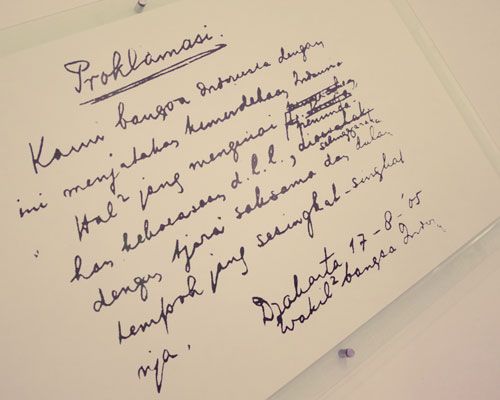 Proklamasi.
Kami bangsa Indonesia dengan
ini menjatakan kemerdekaan Indonesia
Hal² jang mengenai peminda
han kekoeasaan d.l.l., diselenggarakan
dengan tjara saksama dan dalam
tempoh jang sesingkat-singkat
nja.
Djakarta 17-8-'05
Wakil² bangsa Indon